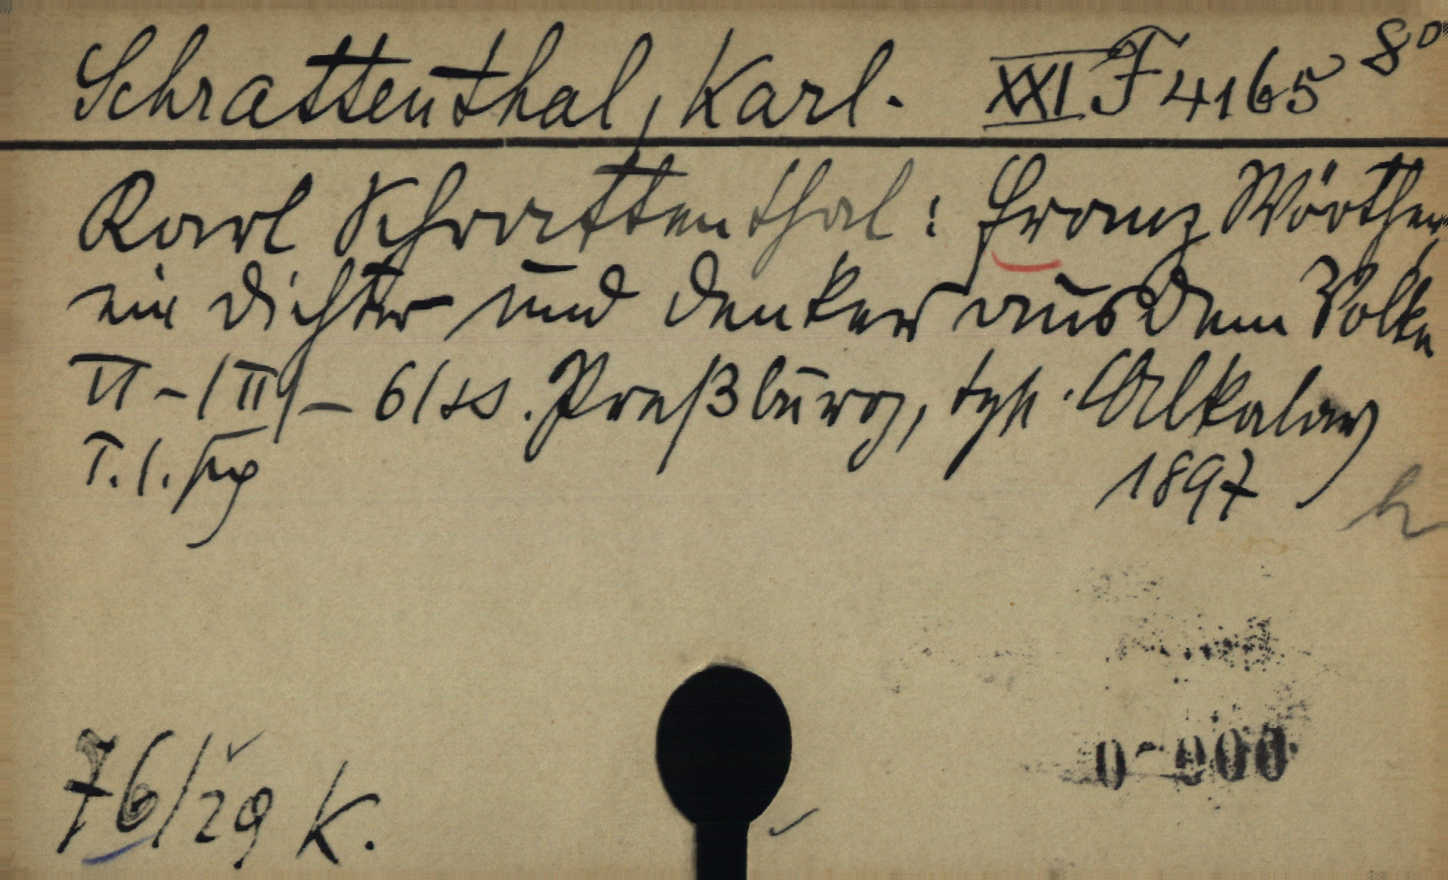 Schrattenthal, Karl. XXI F 4165 8°
Karl Schrattenthal: Franz Wörther
ein Dichter und Denker aus dem Volke
VI - 61 SS. Preßburg, typ. Alkalay
T. 1. 1897
76/29 K.
0-900